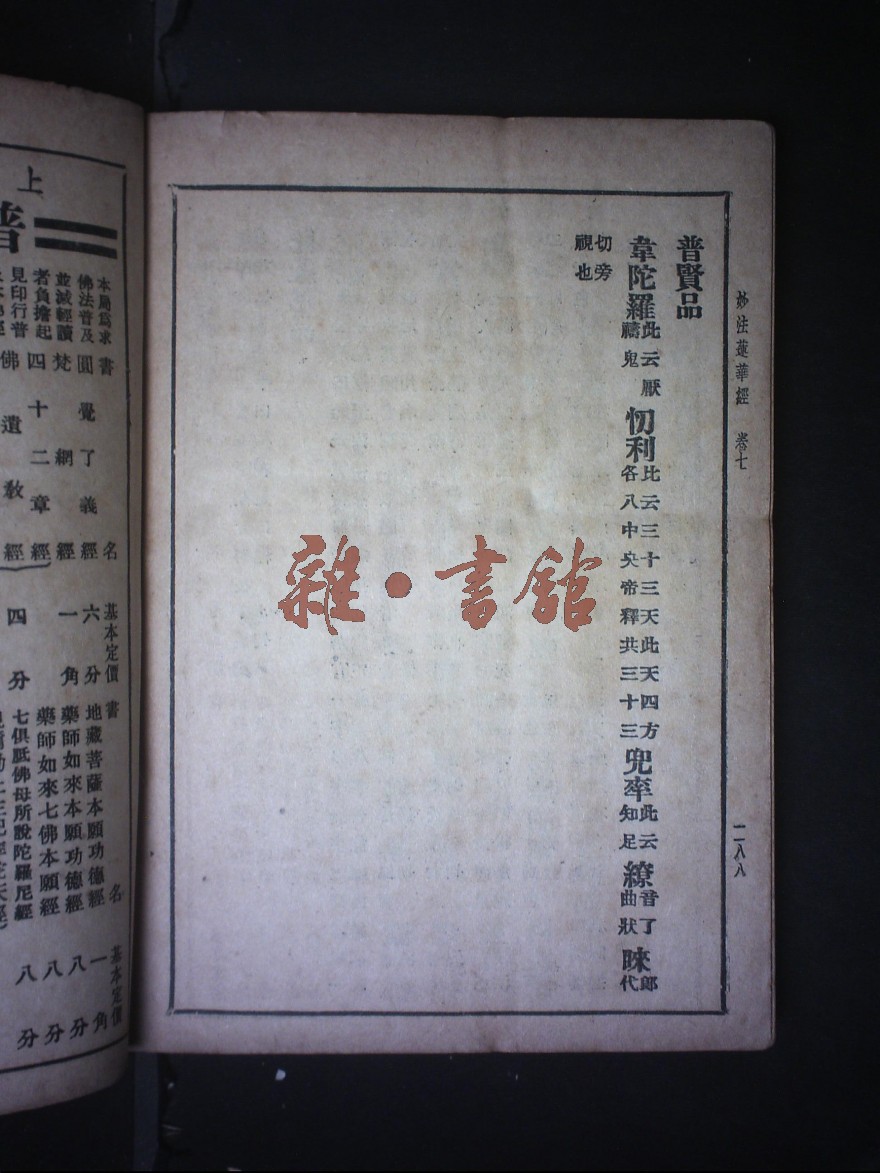 妙法蓮華經 卷七
二八八
普賢品
韋陀羅 此云厭禱鬼 忉利 比云三十三天此天四方各八中央帝釋共三十三 兜率 此云知足 繚 音了曲狀 睞 郎代
切旁視也
雜·書館
上
普
書名 基本定價 書名 基本定價
本局爲求
佛法普及
並減輕讀
者負擔起
見印行普
圓覺了義經 六分
梵網經 一角
四十二章經
佛遺教經 四分
地藏菩薩本願功德經 一角
藥師如來本願功德經 八分
藥師如來七佛本願經 八分
七俱胝佛母所說陀羅尼經 八分